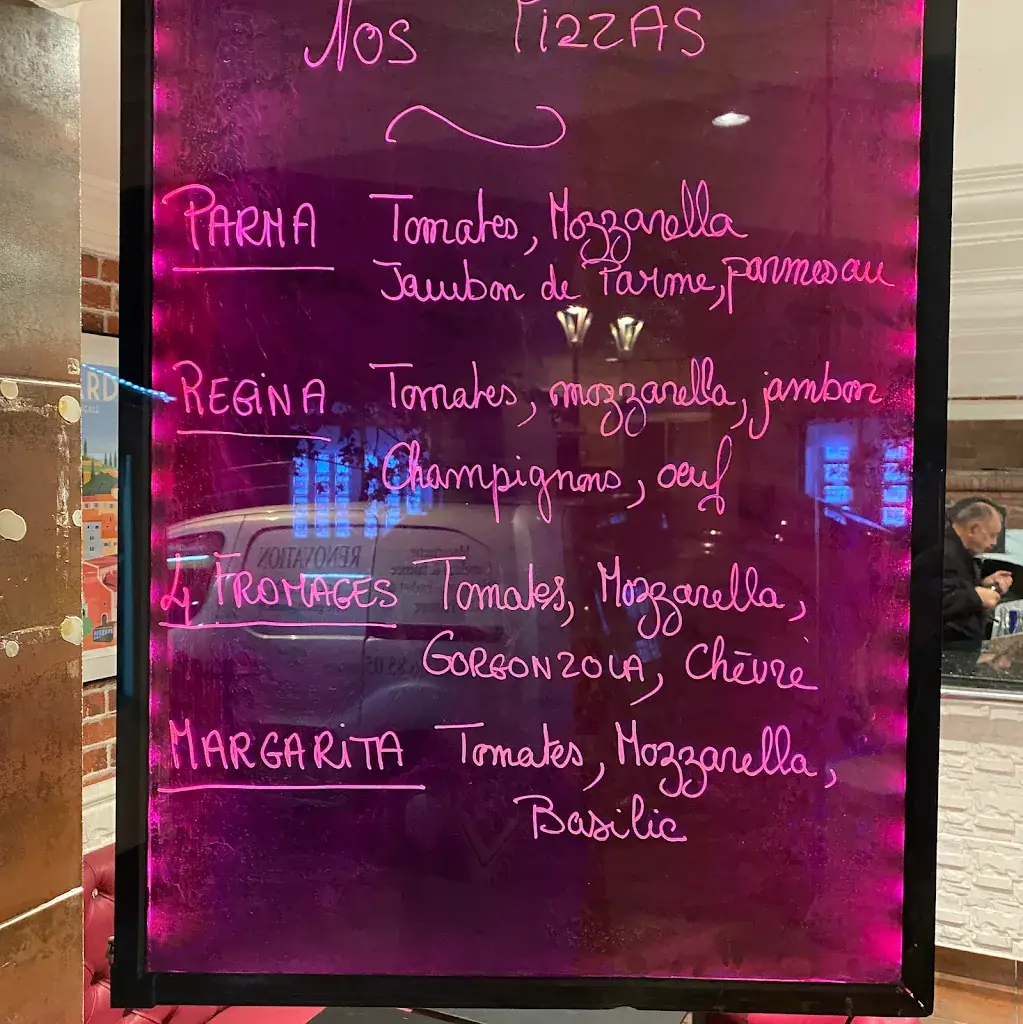 Nos Pizzas
PARMA Tomates, Mozzarella
Jambon de Parme, parmesan
REGINA Tomates, mozzarella, jambon
Champignons, oeuf
4 FROMAGES Tomates, Mozzarella,
GORGONZOLA, Chèvre
MARGARITA Tomates, Mozzarella,
Basilic
RENOVATION